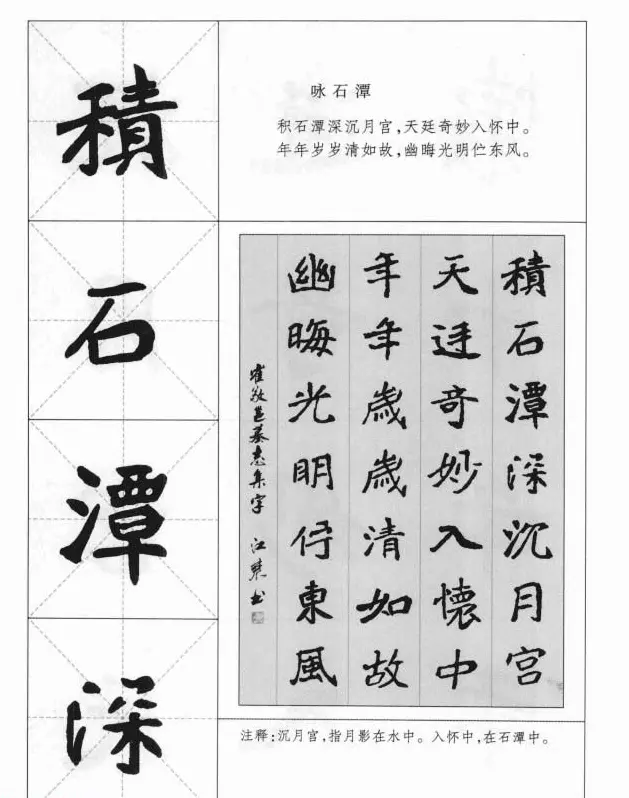 積
石
潭
深
咏石潭
积石潭深沉月官，天廷奇妙入怀中。
年年岁岁清如故，幽晦光明伫东风。
積石潭深沉月宫
天廷奇妙入懷中
年年歲歲清如故
幽晦光明佇東風
崔敬邕墓志集字 江東书
注释：沉月宫，指月影在水中。入怀中，在石潭中。